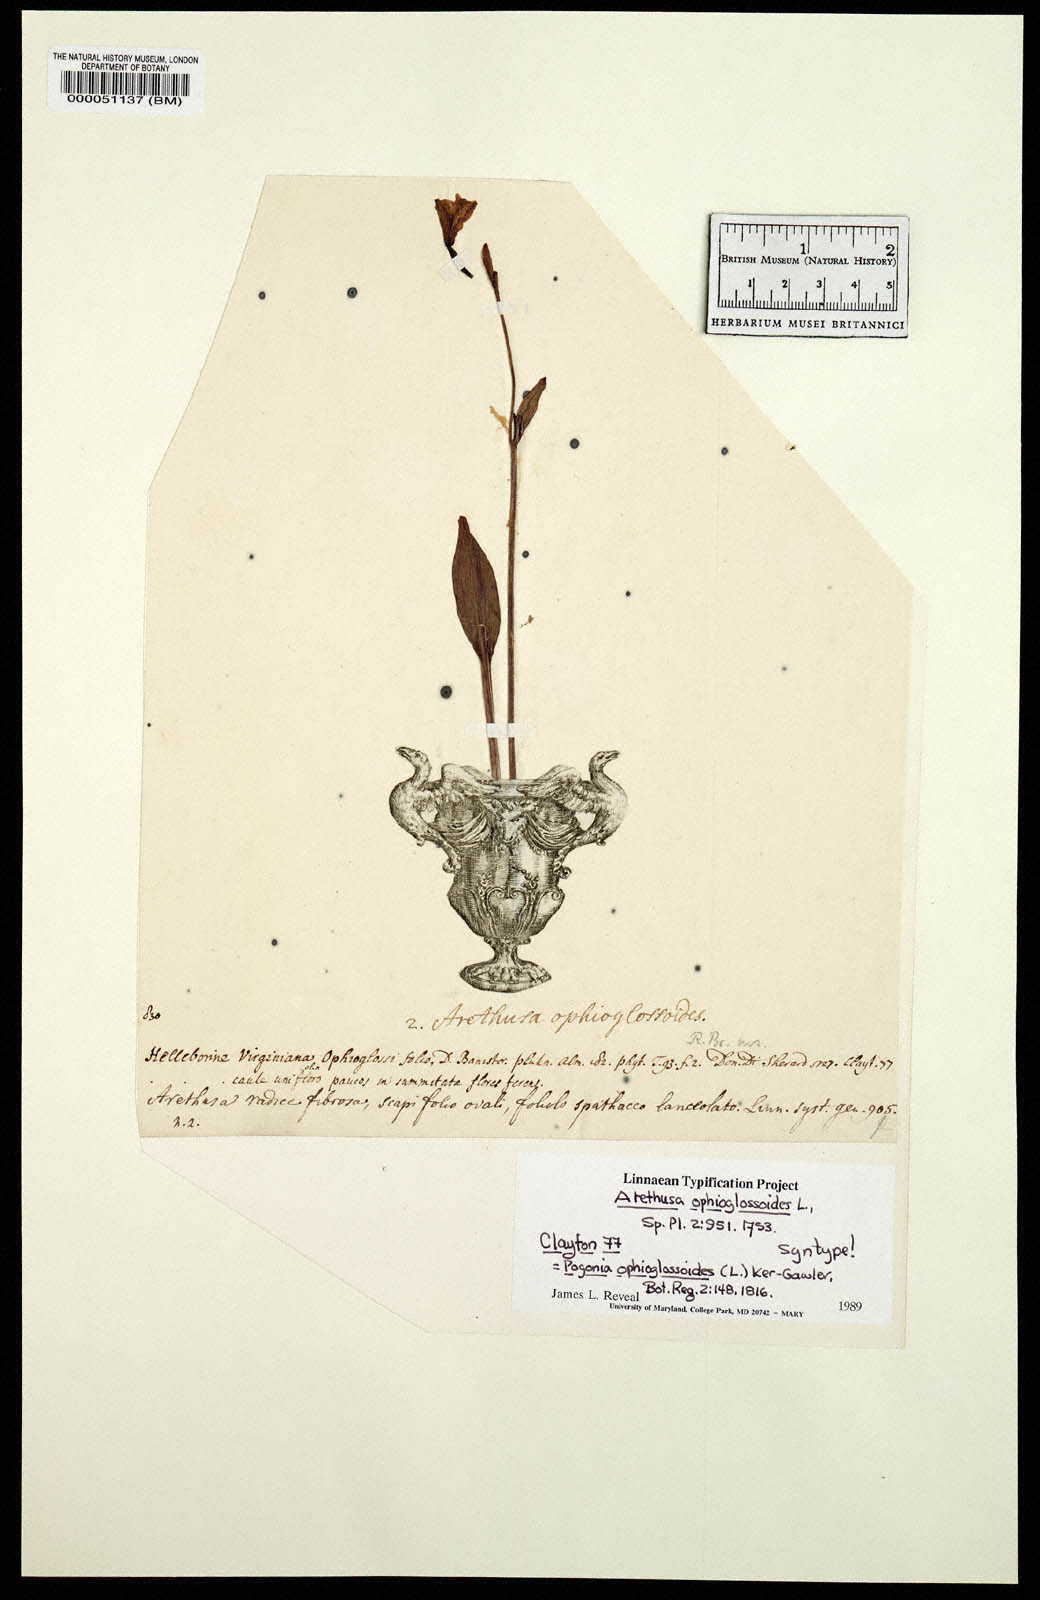 THE NATURAL HISTORY MUSEUM, LONDON
DEPARTMENT OF BOTANY
000051137 (BM)
1 2
BRITISH MUSEUM (NATURAL HISTORY)
1 2 3 4 5
HERBARIUM MUSEI BRITANNICI
830
2. Arethusa ophioglossoides.
R. Br. mss.
Helleborine Virginiana, Ophioglossi folio, D. Banister. plukn. Alm. 182. phyt. T. 93. f. 2. Don. Dr Sherard 1727. Clayt. 77
caule unifloro paucos in summitate flores ferens.
Arethusa radice fibrosa, scapi folio ovali, foliolo spathaceo lanceolato. Linn. syst. gen. 905.
n. 2.
Linnaean Typification Project
Arethusa ophioglossoides L.,
Sp. Pl. 2:951. 1753.
Clayton 77 syntype!
= Pogonia ophioglossoides (L.) Ker-Gawler,
Bot. Reg. 2:148. 1816.
James L. Reveal 1989
University of Maryland, College Park, MD 20742 – MARY